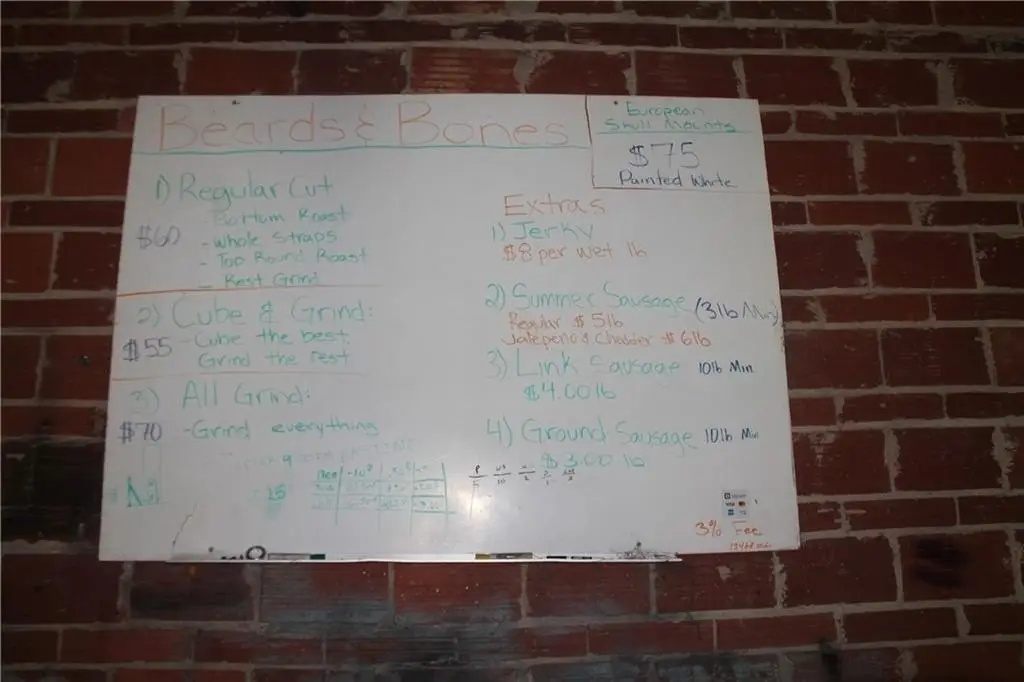 Beards & Bones
European
Skull Mounts
$75
Painted White
1) Regular Cut
$60
- Bottom Roast
- Whole Straps
- Top Round Roast
- Rest Grind
2) Cube & Grind:
$55 - Cube the best
Grind the rest
3) All Grind:
$70 - Grind everything
Extras
1) Jerky
$8 per wet lb
2) Summer Sausage (3lb Min)
Regular $5lb
Jalepeno & Chedder $6lb
3) Link Sausage 10lb Min
$4.00lb
4) Ground Sausage 10lb Min
$3.00 lb
3% Fee